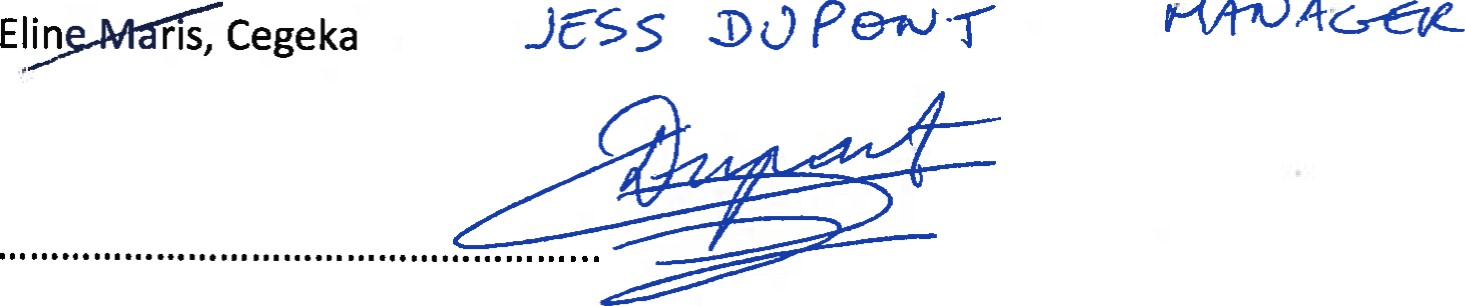 Eline Maris, Cegeka JESS DUPONT MANAGER
Dupont